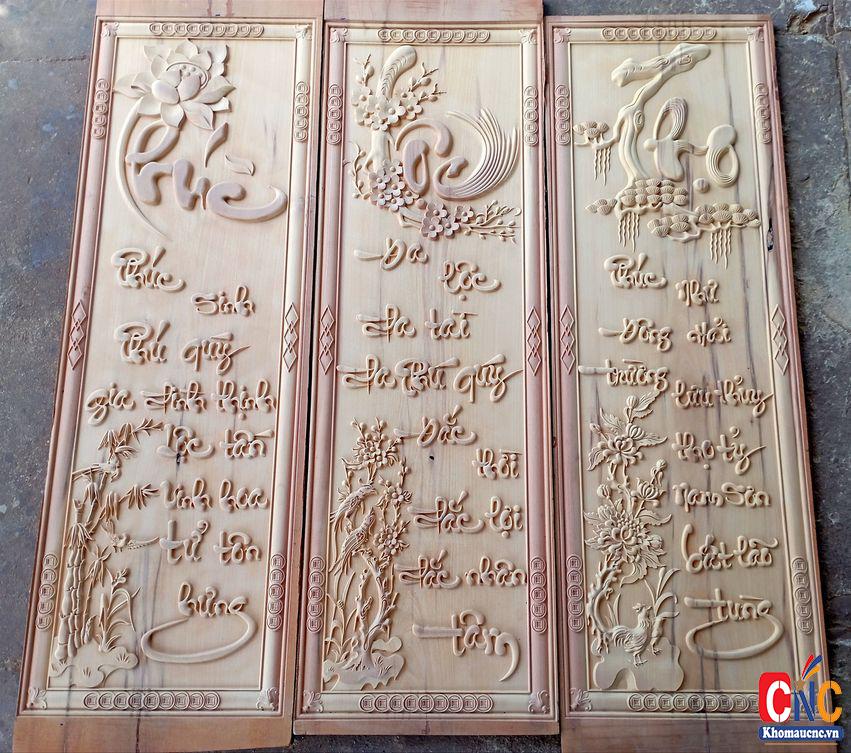 Phúc
Phúc
Sinh
Phú quý
gia đình thịnh
Lộc tấn
vinh hoa
tử tôn
hưng
Lộc
Đa
lộc
đa tài
đa Phú quý
Đắc
thời
đắc lợi
đắc nhân
tâm
Thọ
Phúc
Như
Đông Hải
trường
lưu thủy
thọ tỷ
Nam Sơn
bất lão
tùng
CNC
Khomaucnc.vn